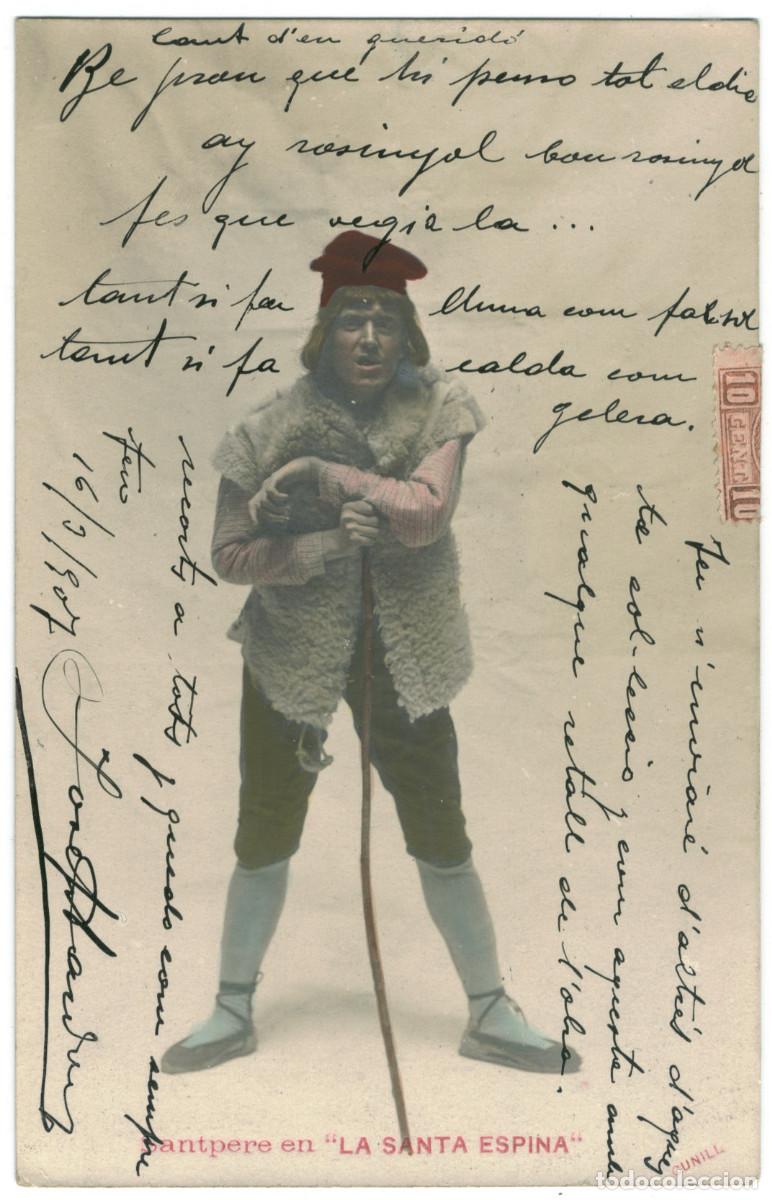 cant d'en queridó
Be prou que hi penso tot el dia
ay rosinyol bon rosinyol
fes que vegia la ...
tant si fa lluna com fa sol
tant si fa calda com
gelera.
10 CENT 10
Ja n'enviaré d'altres d'aques
ta col-lecio y com aquesta amb
qualque retall de l'obra.
recorts a tots y quedo com sempre
teu
16/9/907
Josep
Santpere en "LA SANTA ESPINA"
CUNILL
todocoleccion